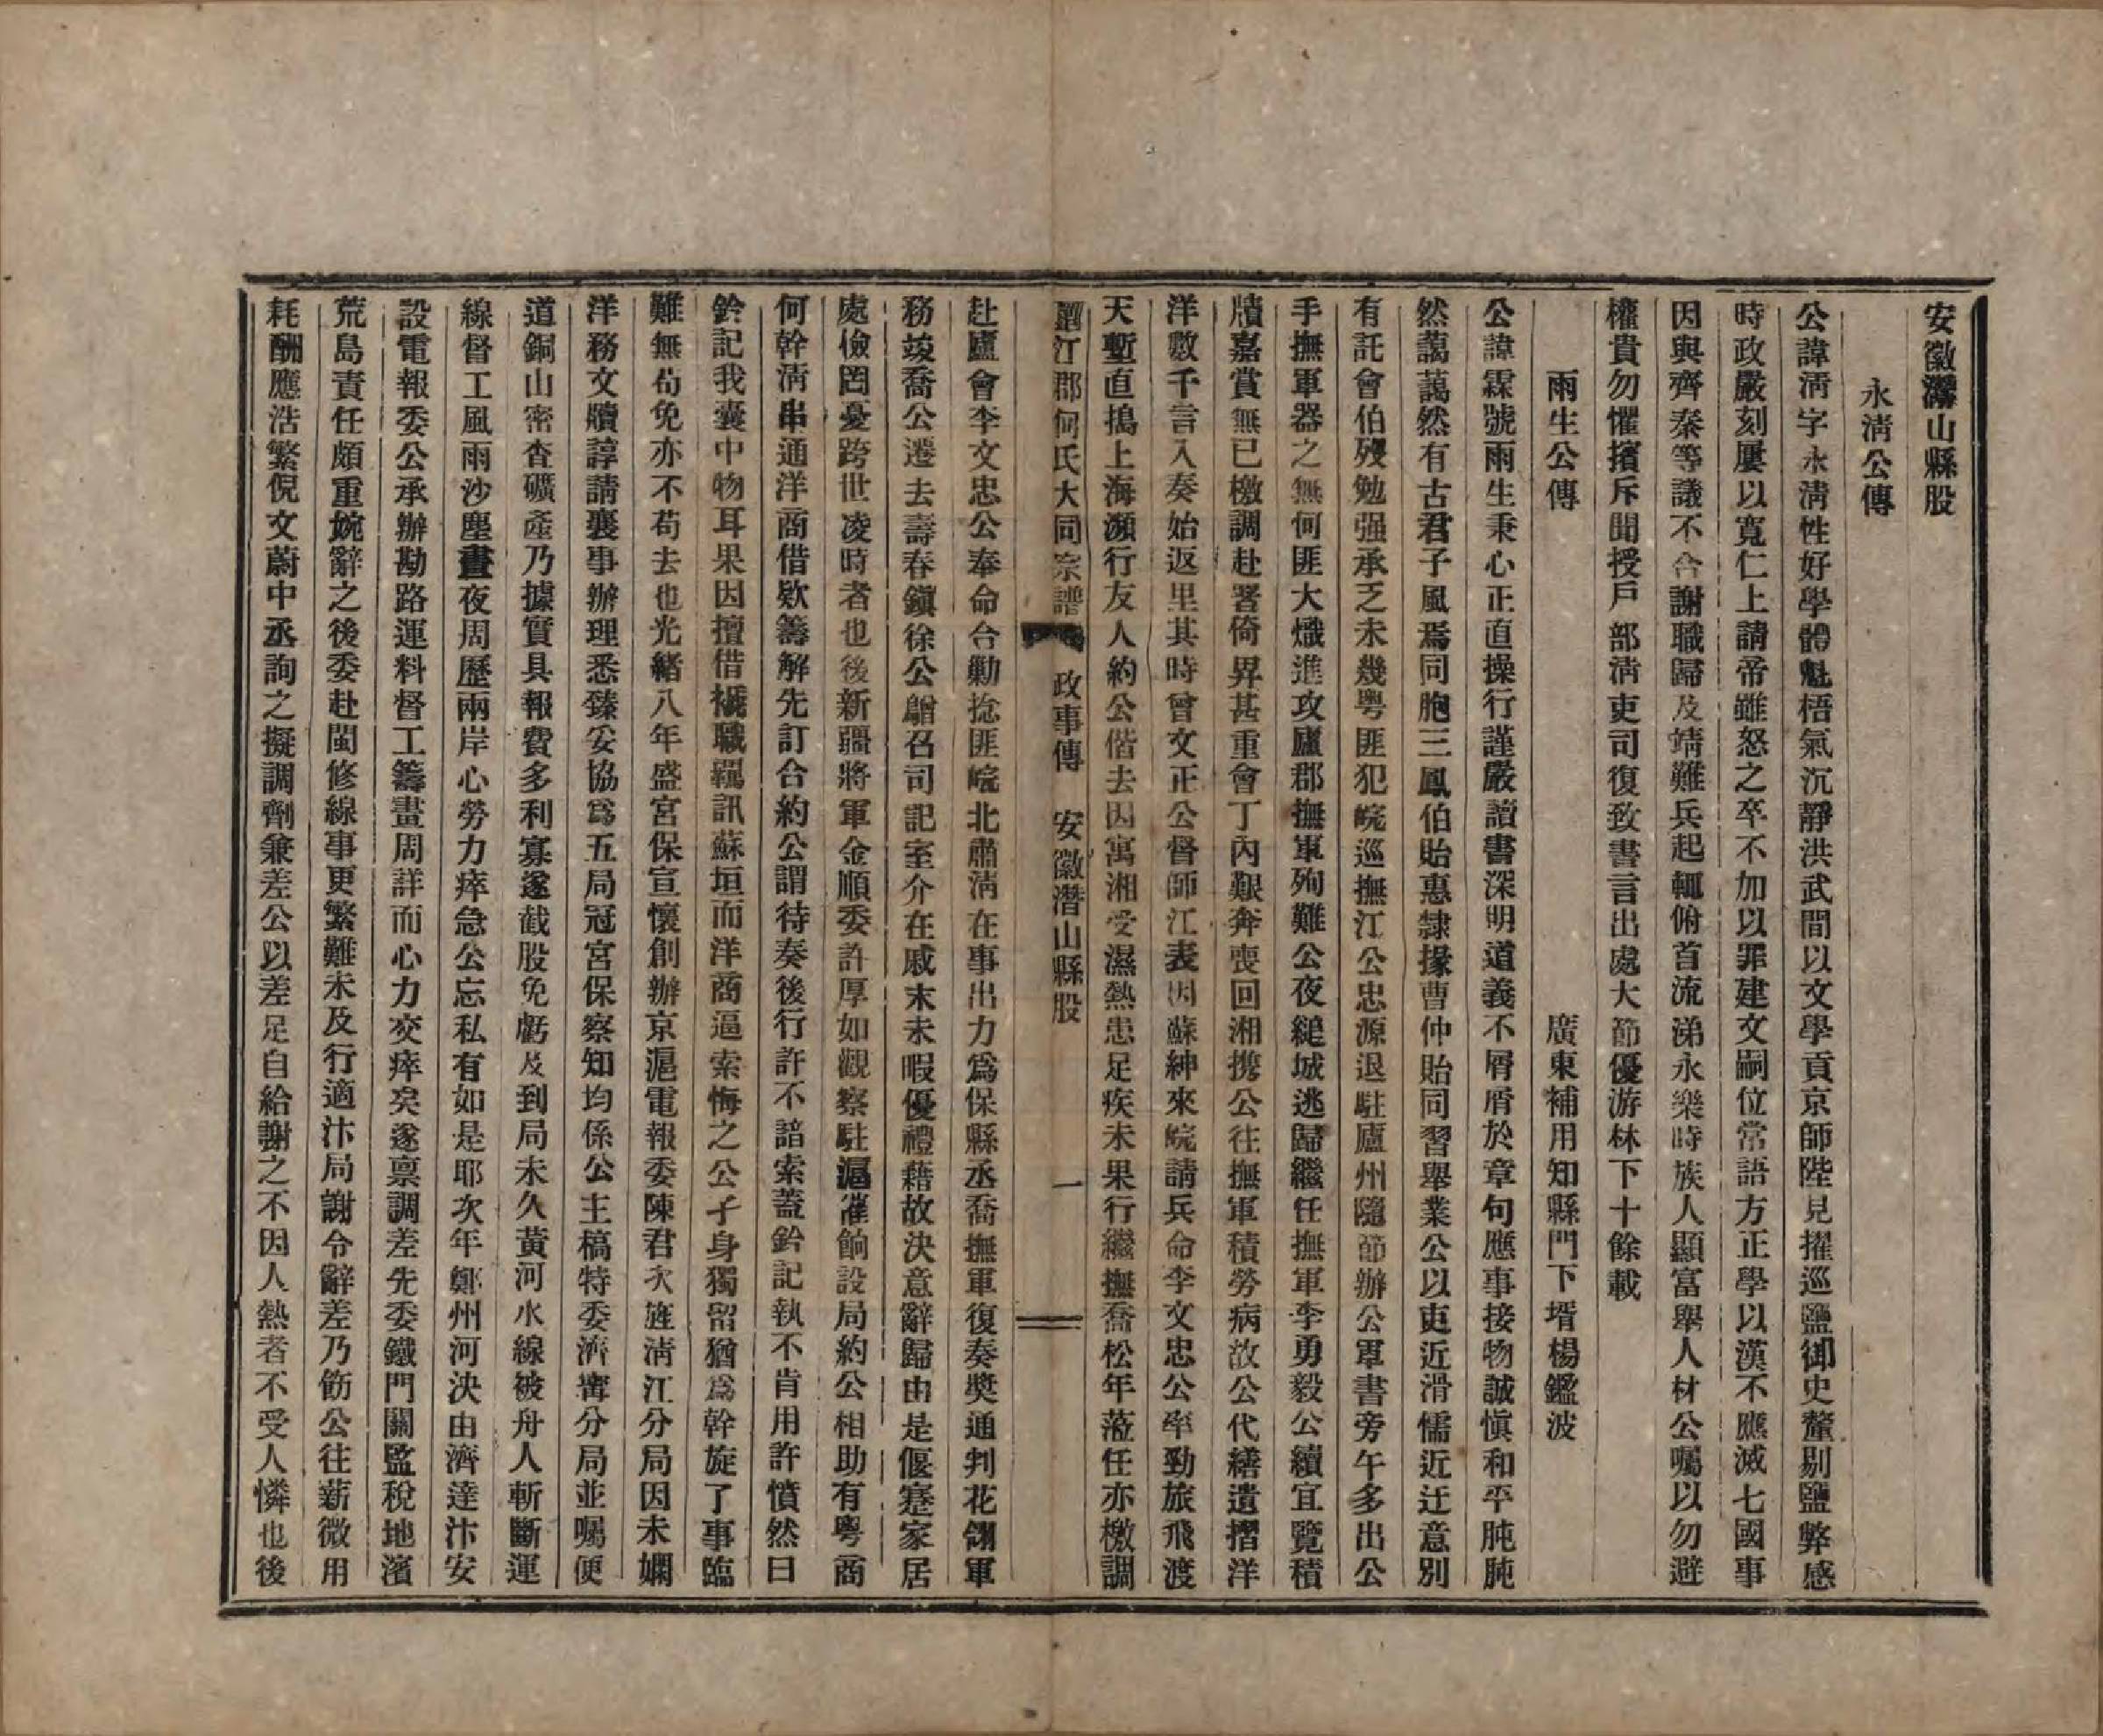 安徽潛山縣股
永淸公傳
公諱淸字永淸性好學體魁梧氣沉靜洪武間以文學貢京師陛見擢巡鹽御史釐剔鹽弊感
時政嚴刻屢以寬仁上請帝雖怒之卒不加以罪建文嗣位常語方正學以漢不應滅七國事
因與齊泰等議不合謝職歸及靖難兵起輒俯首流涕永樂時族人顯富舉人材公囑以勿避
權貴勿懼擯斥聞授戶部淸吏司復致書言出處大節優游林下十餘載
雨生公傳　廣東補用知縣門下壻楊鑑波
公諱霖號雨生秉心正直操行謹嚴讀書深明道義不屑屑於章句應事接物誠愼和平肫肫
然藹藹然有古君子風焉同胞三鳳伯貽惠隸掾曹仲貽同習舉業公以吏近滑儒近迂意別
有託會伯歿勉强承乏未幾粤匪犯皖巡撫江公忠源退駐廬州隨節辦公軍書旁午多出公
手撫軍器之無何匪大熾進攻廬郡撫軍殉難公夜縋城逃歸繼任撫軍李勇毅公續宜覽積
牘嘉賞無已檄調赴署倚畀甚重會丁內艱奔喪回湘携公往撫軍積勞病故公代繕遺摺洋
洋數千言入奏始返里其時曾文正公督師江表因蘇紳來皖請兵命李文忠公率勁旅飛渡
天塹直搗上海瀕行友人約公偕去因寓湘受濕熱患足疾未果行繼撫喬松年蒞任亦檄調
廬江郡何氏大同宗譜　政事傳　安徽潛山縣股　一
赴廬會李文忠公奉命合勦捻匪皖北肅淸在事出力爲保縣丞喬撫軍復奏獎通判花翎軍
務竣喬公遷去壽春鎭徐公鶴召司記室介在戚末未暇優禮藉故決意辭歸由是偃蹇家居
處儉罔憂跨世凌時者也後新疆將軍金順委許厚如觀察駐滬催餉設局約公相助有粤商
何幹淸串通洋商借欵籌解先訂合約公謂待奏後行許不諳索蓋鈐記執不肯用許憤然曰
鈐記我囊中物耳果因擅借褫職羈訊蘇垣而洋商逼索悔之公孑身獨留猶爲幹旋了事臨
難無苟免亦不苟去也光緒八年盛宮保宣懷創辦京滬電報委陳君次旌淸江分局因未嫻
洋務文牘諄請襄事辦理悉臻妥協爲五局冠宮保察知均係公主稿特委濟甯分局並囑便
道銅山密查礦產乃據實具報費多利寡遂截股免虧及到局未久黃河水線被舟人斬斷運
線督工風雨沙塵晝夜周歷兩岸心勞力瘁急公忘私有如是耶次年鄭州河決由濟達汴安
設電報委公承辦勘路運料督工籌畫周詳而心力交瘁矣遂禀調差先委鐵門關監稅地濱
荒島責任頗重婉辭之後委赴閩修線事更繁難未及行適汴局謝令辭差乃飭公往薪微用
耗酬應浩繁倪文蔚中丞詢之擬調劑兼差公以差足自給謝之不因人熱者不受人憐也後